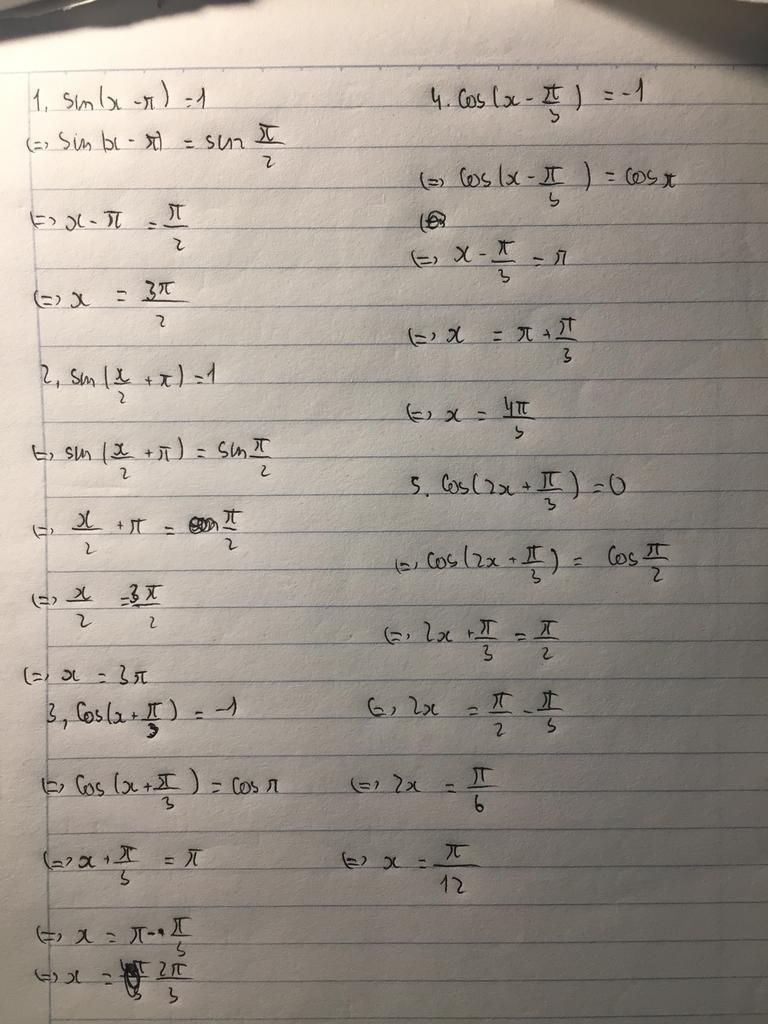 1, sin(x - π) = 1
(=) sin(x - π) = sin π/2
(=) x - π = π/2
(=) x = 3π/2
2, sin(x/2 + π) = 1
(=) sin(x/2 + π) = sin π/2
(=) x/2 + π = π/2
(=) x/2 = 3π/2
(=) x = 3π
3, cos(x + π/3) = -1
(=) cos(x + π/3) = cos π
(=) x + π/3 = π
(=) x = π - π/3
(=) x = 2π/3
4. cos(x - π/3) = -1
(=) cos(x - π/3) = cos π
(=) x - π/3 = π
(=) x = π + π/3
(=) x = 4π/3
5. cos(2x + π/3) = 0
(=) cos(2x + π/3) = cos π/2
(=) 2x + π/3 = π/2
(=) 2x = π/2 - π/3
(=) 2x = π/6
(=) x = π/12